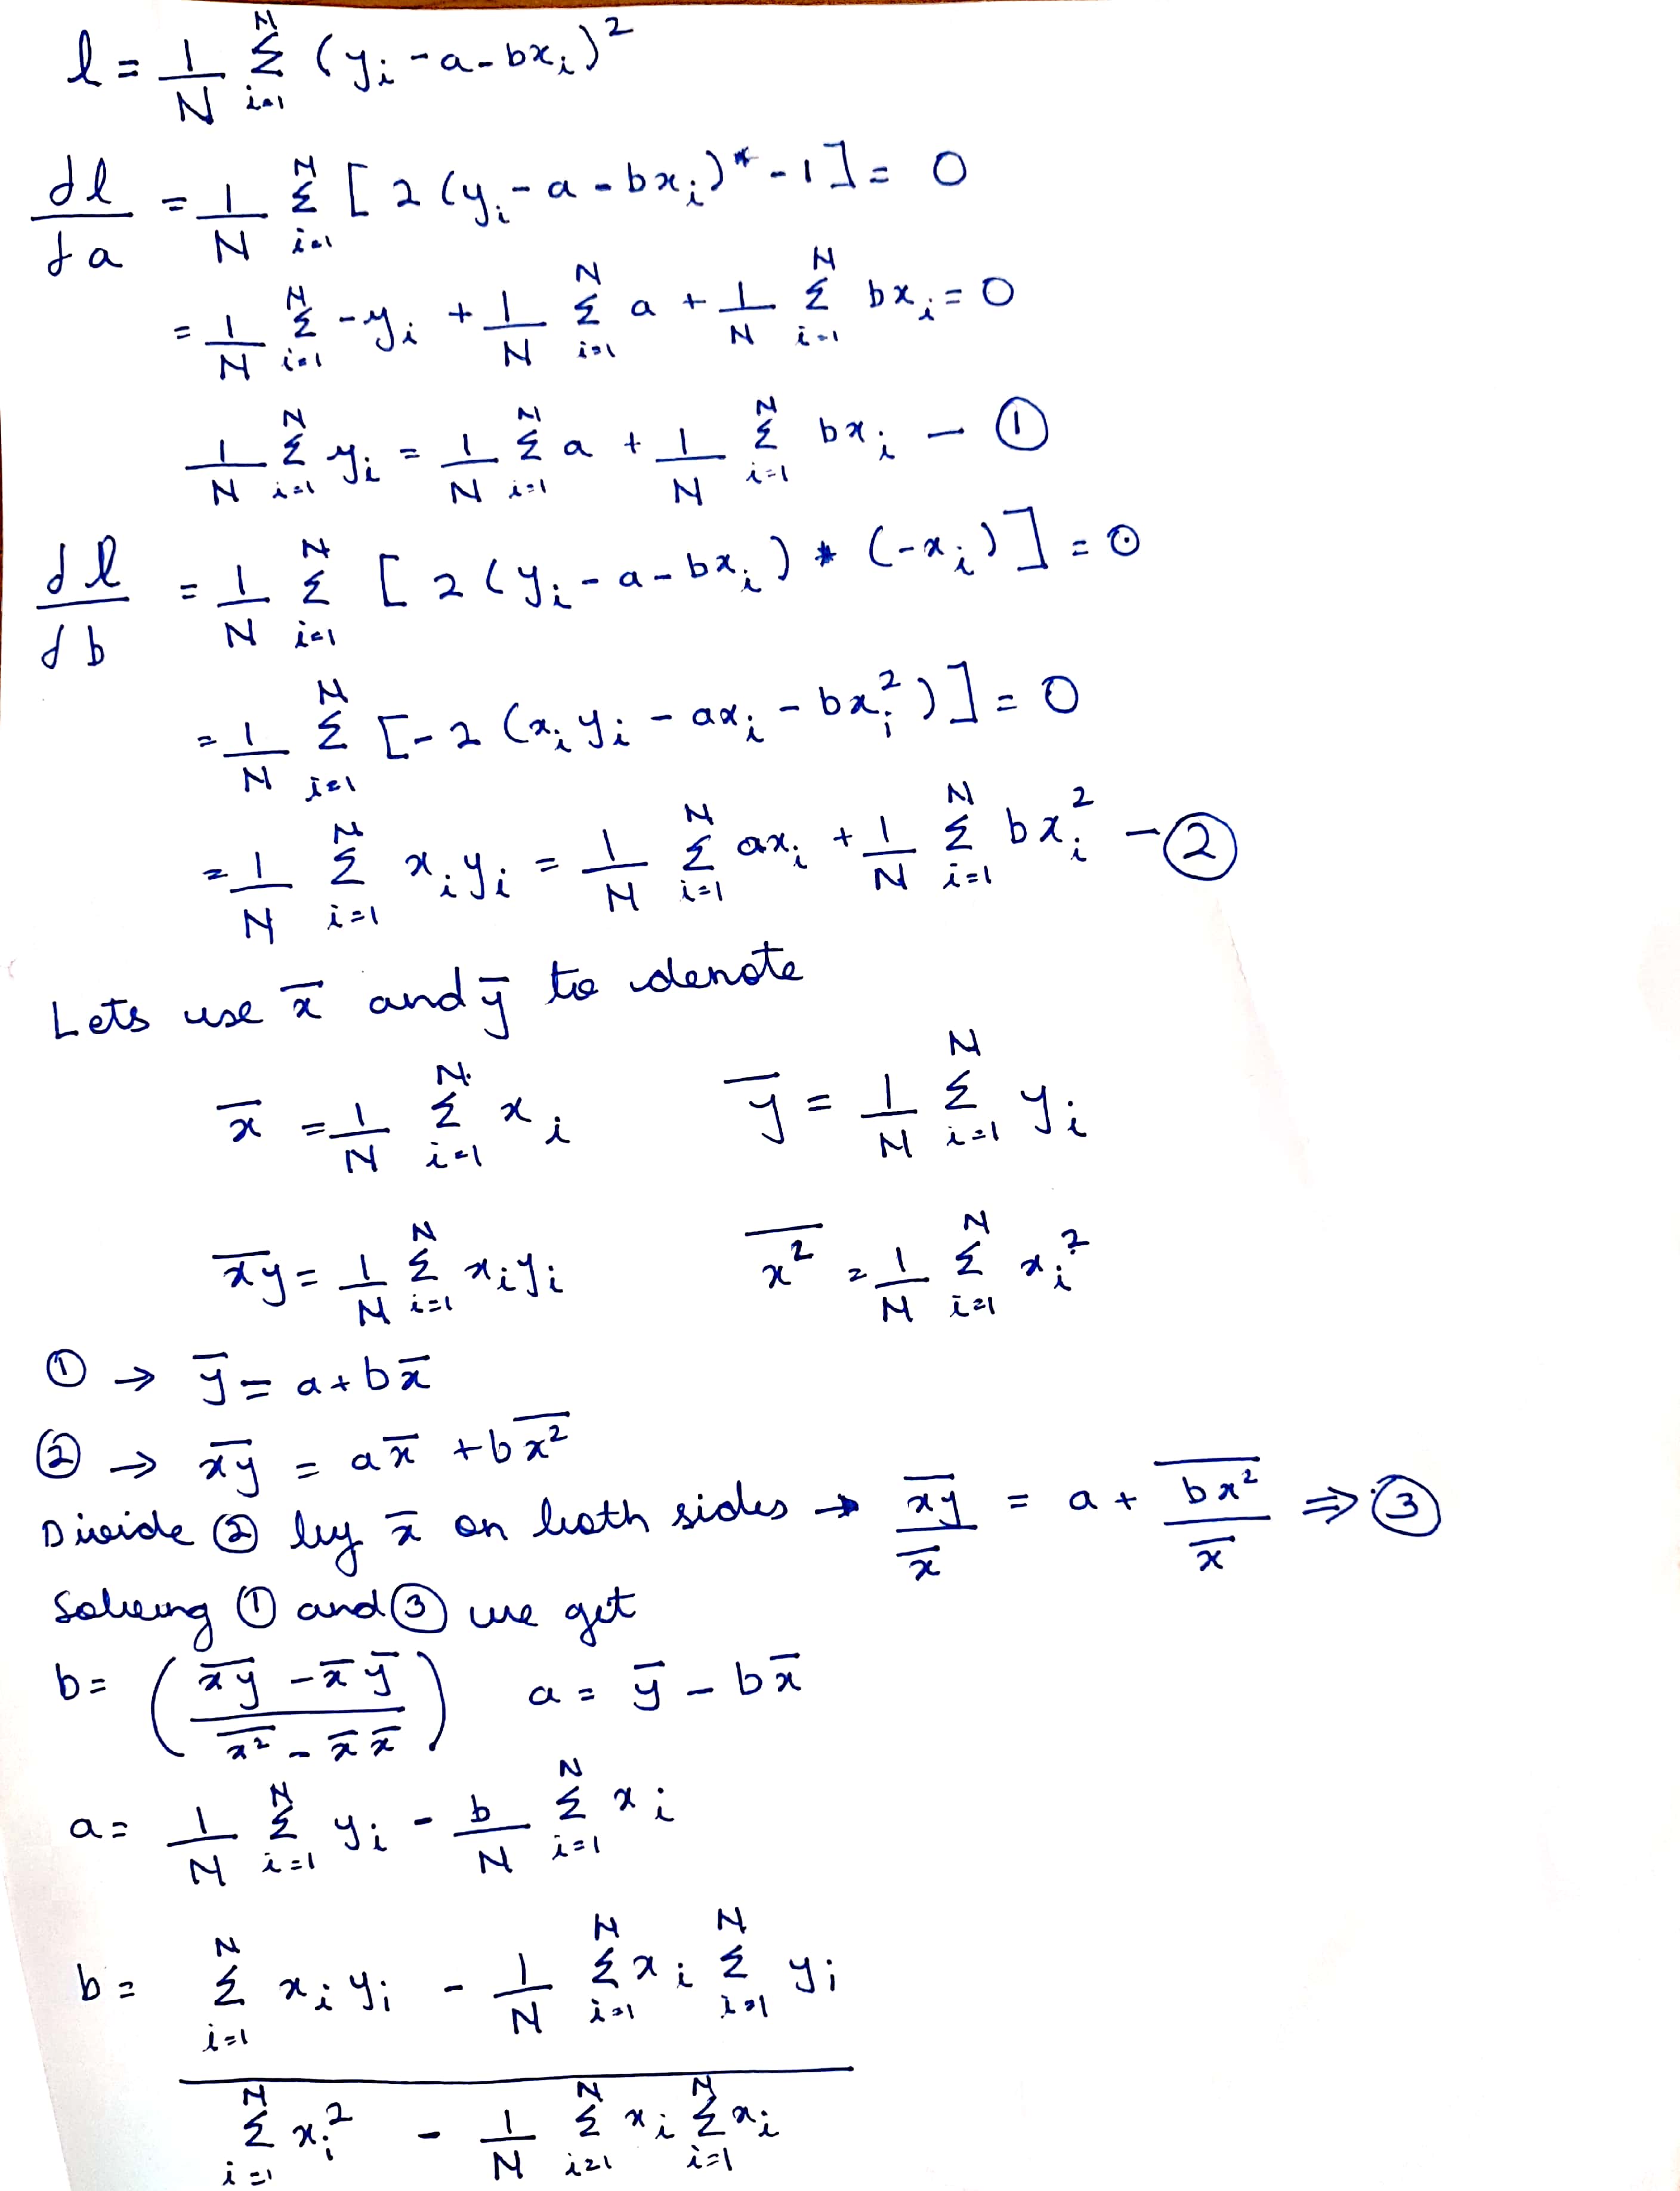 l = 1/N Σ_{i=1}^{N} (y_i - a - bx_i)^2
dl/da = 1/N Σ_{i=1}^{N} [2(y_i - a - bx_i) * -1] = 0
= 1/N Σ_{i=1}^{N} -y_i + 1/N Σ_{i=1}^{N} a + 1/N Σ_{i=1}^{N} bx_i = 0
1/N Σ_{i=1}^{N} y_i = 1/N Σ_{i=1}^{N} a + 1/N Σ_{i=1}^{N} bx_i - ①
dl/db = 1/N Σ_{i=1}^{N} [2(y_i - a - bx_i) * (-x_i)] = 0
= 1/N Σ_{i=1}^{N} [-2(x_i y_i - ax_i - bx_i^2)] = 0
= 1/N Σ_{i=1}^{N} x_i y_i = 1/N Σ_{i=1}^{N} ax_i + 1/N Σ_{i=1}^{N} bx_i^2 - ②
Lets use x̄ and ȳ to denote
x̄ = 1/N Σ_{i=1}^{N} x_i    ȳ = 1/N Σ_{i=1}^{N} y_i
\overline{xy} = 1/N Σ_{i=1}^{N} x_i y_i    \overline{x^2} = 1/N Σ_{i=1}^{N} x_i^2
① → ȳ = a + b x̄
② → \overline{xy} = a x̄ + b \overline{x^2}
Divide ② by x̄ on both sides → \overline{xy}/x̄ = a + \overline{bx^2}/x̄ ⇒ ③
Solving ① and ③ we get
b = ((\overline{xy} - x̄ ȳ)/(\overline{x^2} - x̄ x̄))    a = ȳ - b x̄
a = 1/N Σ_{i=1}^{N} y_i - b/N Σ_{i=1}^{N} x_i
b = Σ_{i=1}^{N} x_i y_i - 1/N Σ_{i=1}^{N} x_i Σ_{i=1}^{N} y_i
/ Σ_{i=1}^{N} x_i^2 - 1/N Σ_{i=1}^{N} x_i Σ_{i=1}^{N} x_i